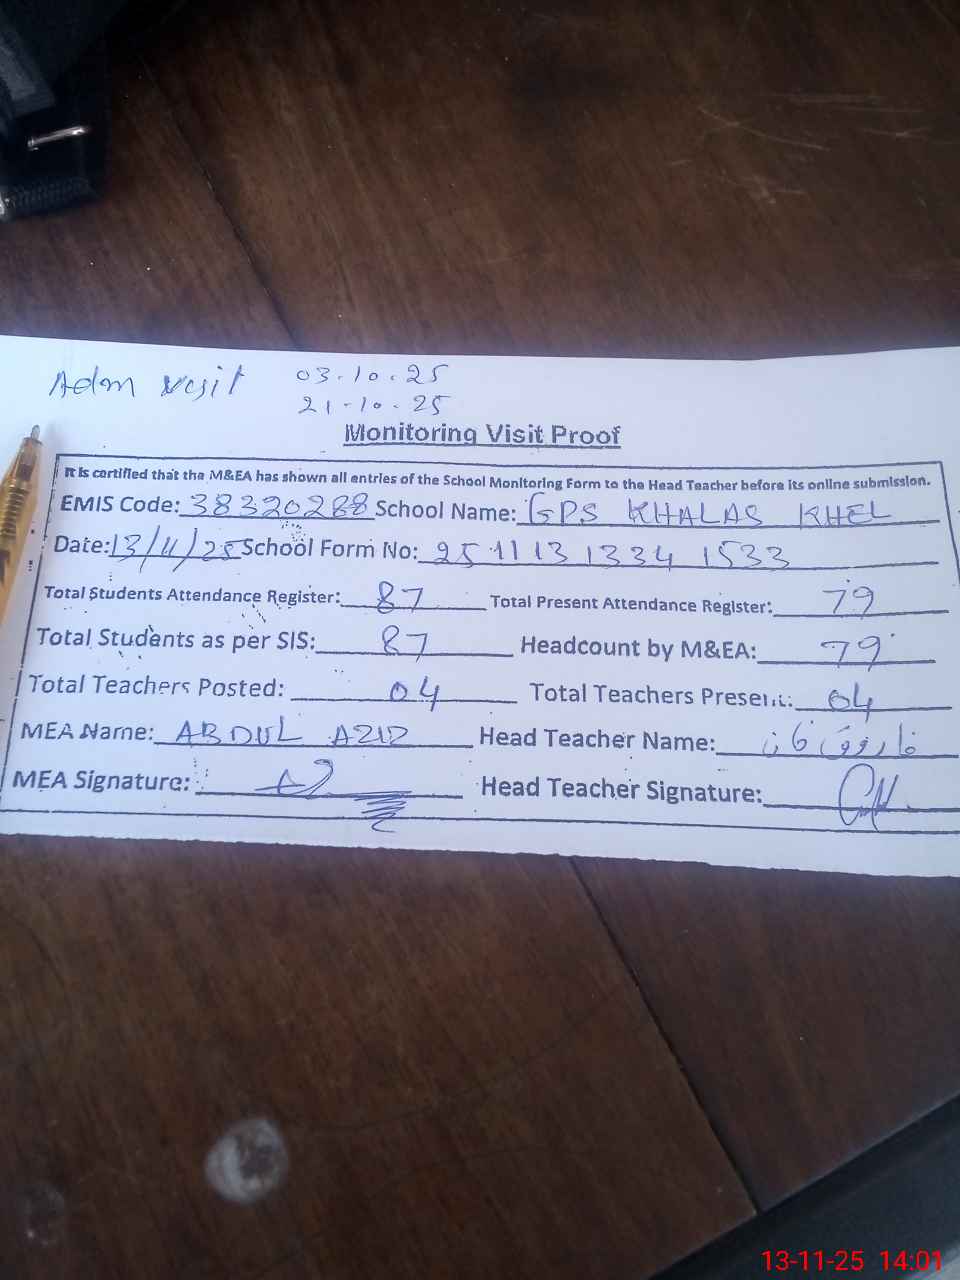 Adm visit 03.10.25
21-10-25
Monitoring Visit Proof
It is certified that the M&EA has shown all entries of the School Monitoring Form to the Head Teacher before its online submission.
EMIS Code: 38320288 School Name: GPS KHALAS KHEL
Date: 13/11/25 School Form No: 25 11 13 1334 1533
Total Students Attendance Register: 87 Total Present Attendance Register: 79
Total Students as per SIS: 87 Headcount by M&EA: 79
Total Teachers Posted: 04 Total Teachers Present: 04
MEA Name: ABDUL AZIZ Head Teacher Name: فاروق
MEA Signature: Head Teacher Signature:
13-11-25 14:01